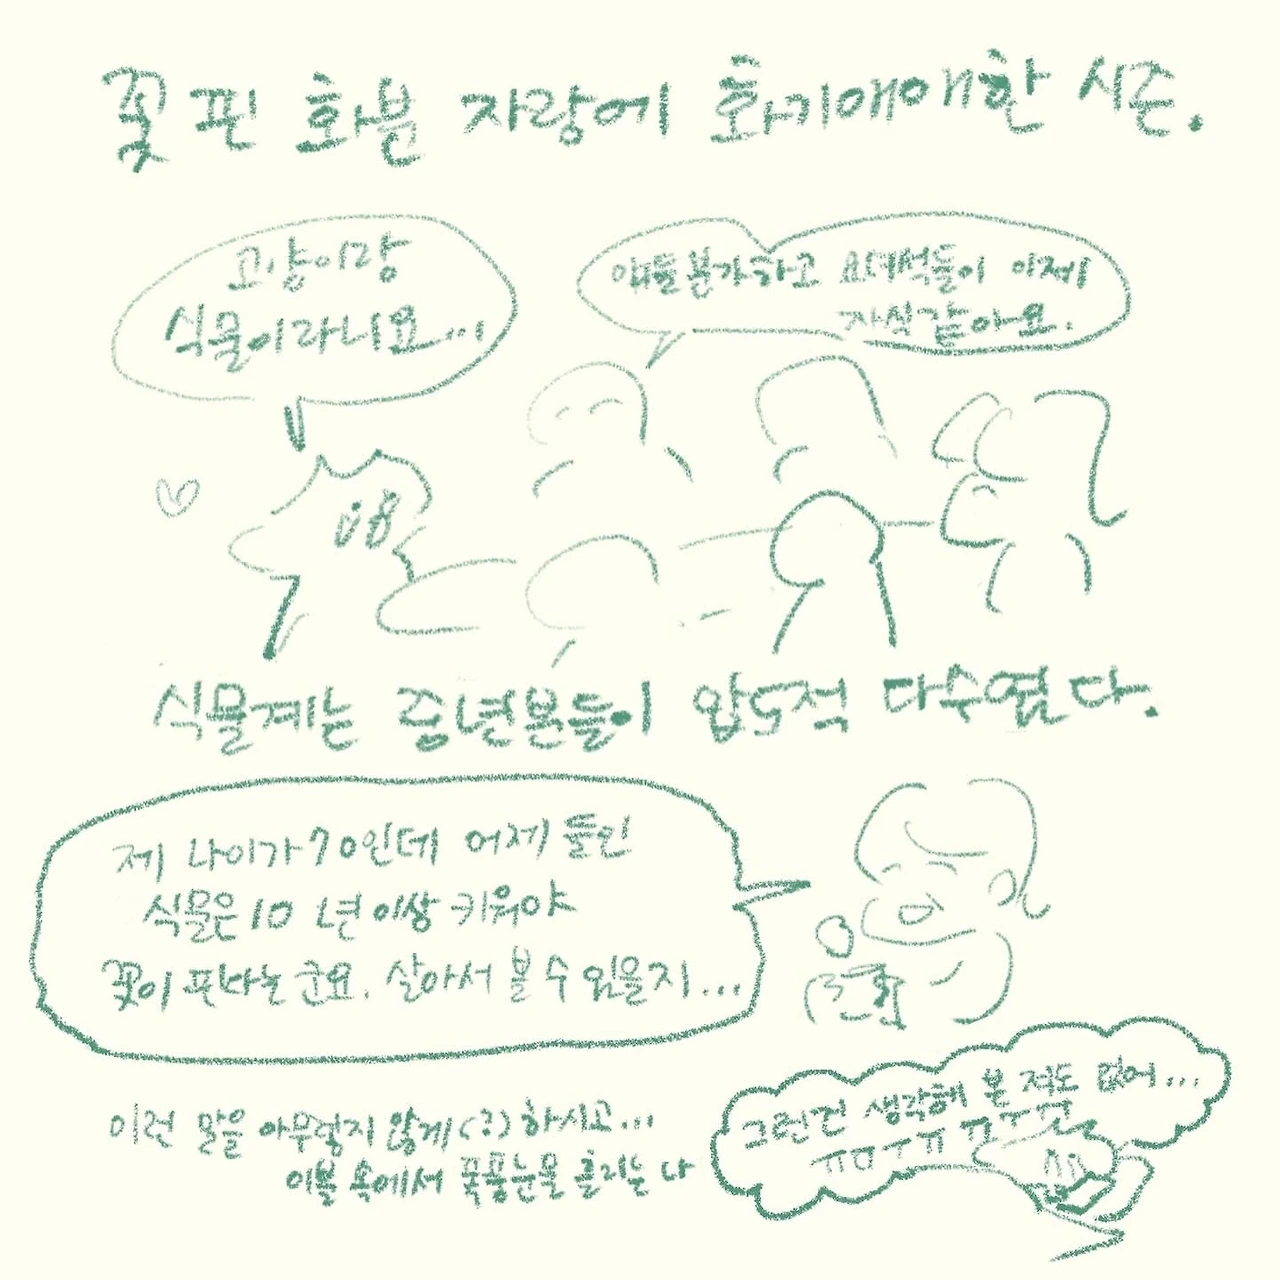 꽃 핀 화분 자랑에 화기애애한 시즌.
고양이랑
식물이라니요...
애들 분가하고 요녀석들이 이제
자식같아요.
식물계는 중년분들이 압도적 다수였다.
제 나이가 70인데 어제 들인
식물은 10년 이상 키워야
꽃이 핀다는군요. 살아서 볼 수 있을지...
이런 말을 아무렇지 않게(?) 하시고...
이불 속에서 폭풍눈물 흘리는 나
그런건 생각해 본 적도 없어...